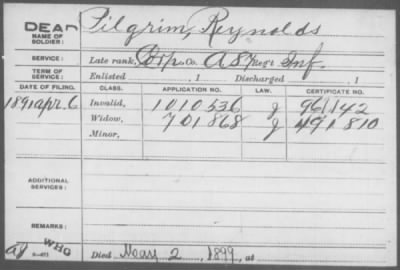 DEAD Pilgrim, Reynolds
NAME OF
SOLDIER:
SERVICE: Late rank, Co. A 87 Reg't Inf.
TERM OF
SERVICE: Enlisted , 1 Discharged , 1
DATE OF FILING. CLASS. APPLICATION NO. LAW. CERTIFICATE NO.
1891 Apr. 6 Invalid, 1010536 g 961142
Widow, 701868 g 491810
Minor,
ADDITIONAL
SERVICES:
REMARKS: WHO
Died May 2, 1899, at